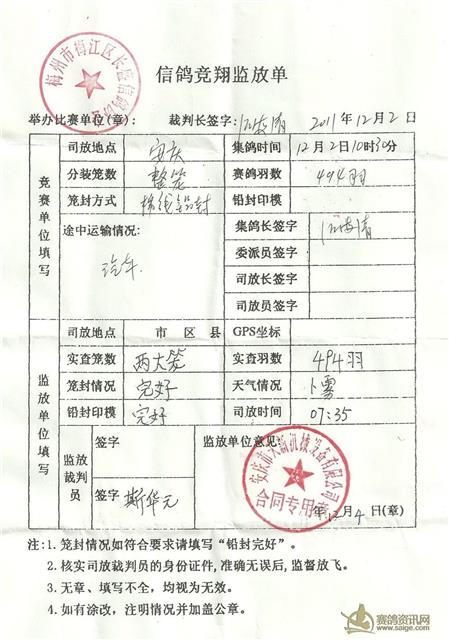 信鸽竞翔监放单
举办比赛单位(章): 裁判长签字: 2011年12月2日
竞赛单位填写
司放地点 安庆 集鸽时间 12月2日10时30分
分装笼数 整笼 赛鸽羽数 494羽
笼封方式 棉线铅封 铅封印模
途中运输情况: 集鸽长签字
汽车 委派员签字
司放长签字
司放员签字
监放单位填写
司放地点 市区县 GPS坐标
实查笼数 两大笼 实查羽数 494羽
笼封情况 完好 天气情况
铅封印模 完好 司放时间 07:35
监放裁判员 签字 监放单位意见:
签字 斯华元
合同专用章
12月4日(章)
注:1. 笼封情况如符合要求请填写“铅封完好”。
2. 核实司放裁判员的身份证件,准确无误后,监督放飞。
3. 无章、填写不全,均视为无效。
4. 如有涂改,注明情况并加盖公章。
赛鸽资讯网
www.saige.com